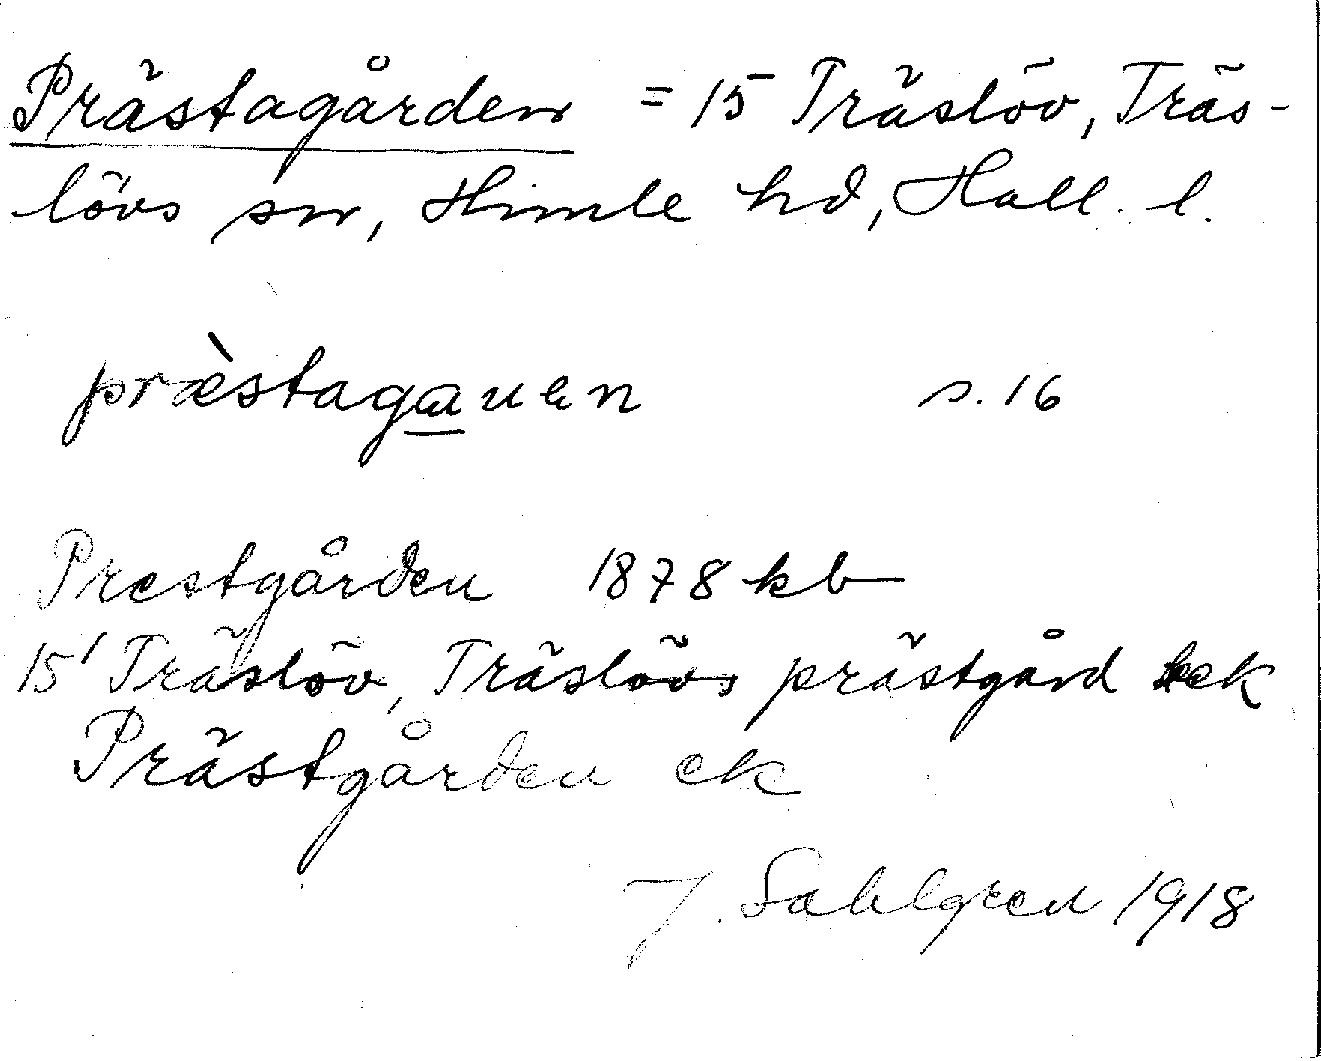 Prästagården = 15 Träslöv, Träs-
lövs sn, Himle hd, Hall. l.
præ̀staga̲uen s. 16
Prestgården 1878 kb
15¹ Träslöv, Träslövs prästgård ek
Prästgården ek
J. Sahlgren 1918